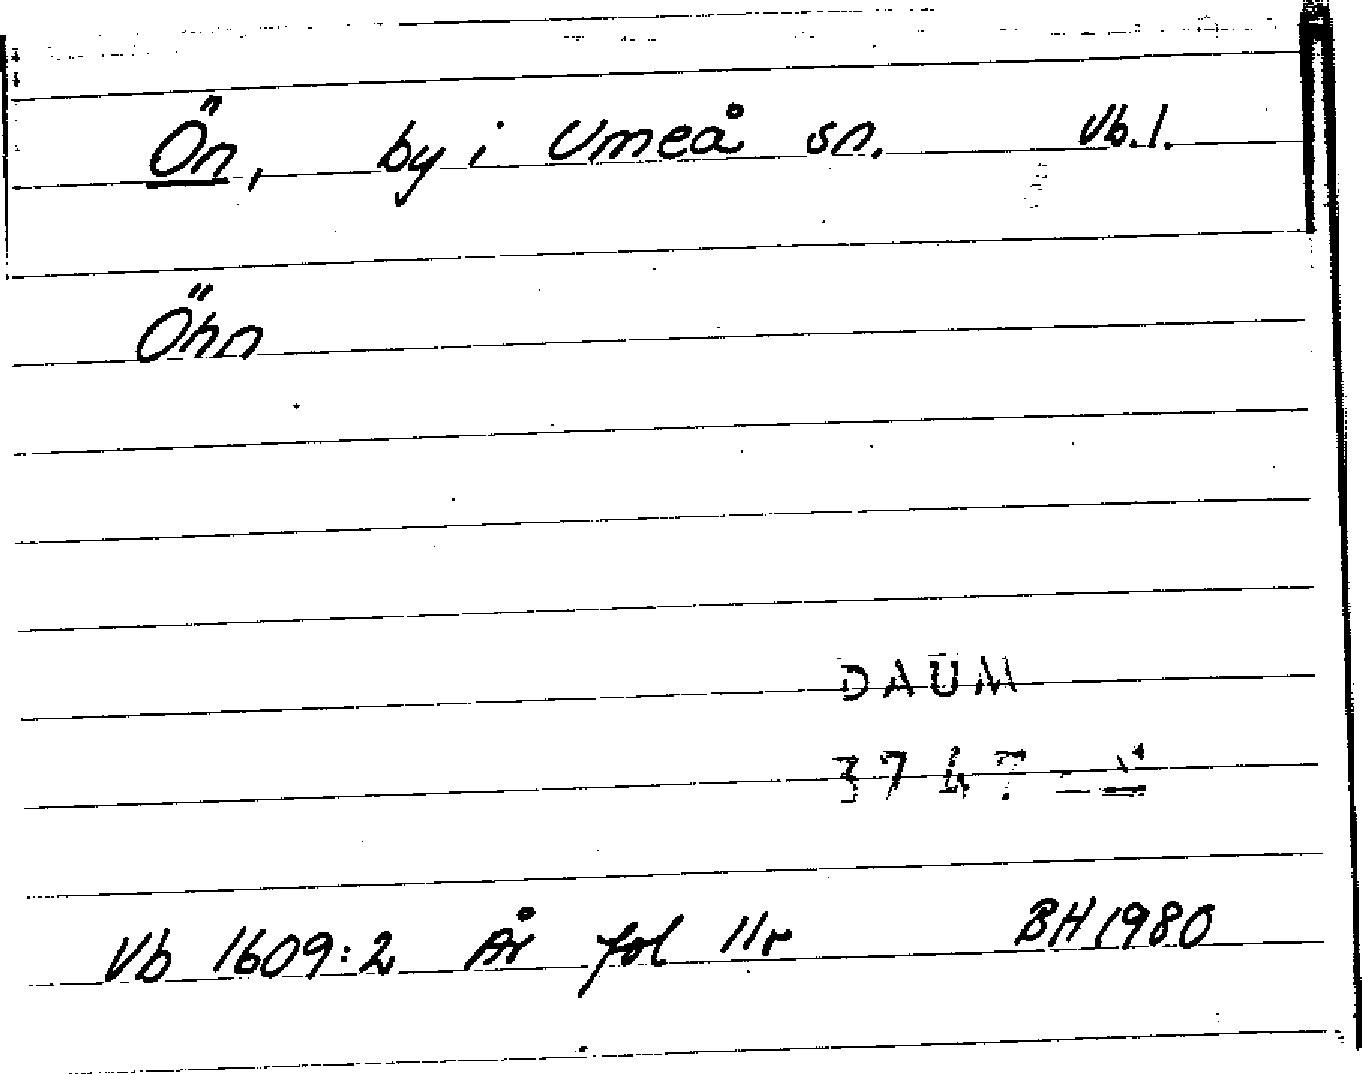 Ön, by i Umeå sn. Vb. l.
Öhn
DAUM
3747
Vb 1609:2 År fol 11r BH 1980